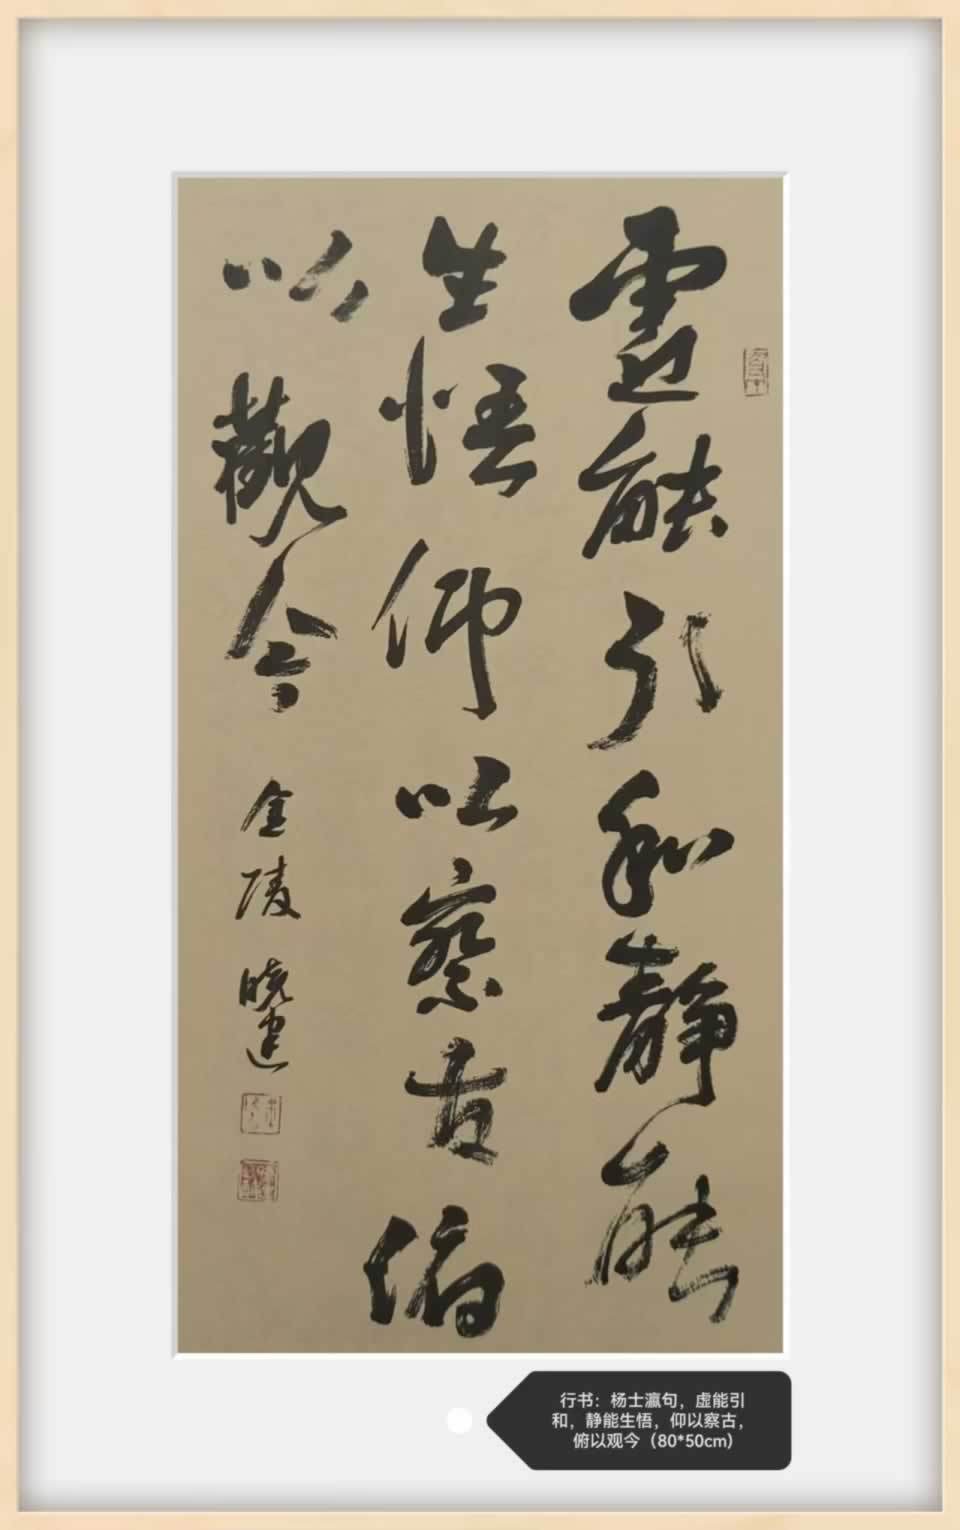 虛能引和靜能
生悟仰以察古俯
以觀今
金陵曉建
行书：杨士瀛句，虚能引
和，静能生悟，仰以察古，
俯以观今（80*50cm）